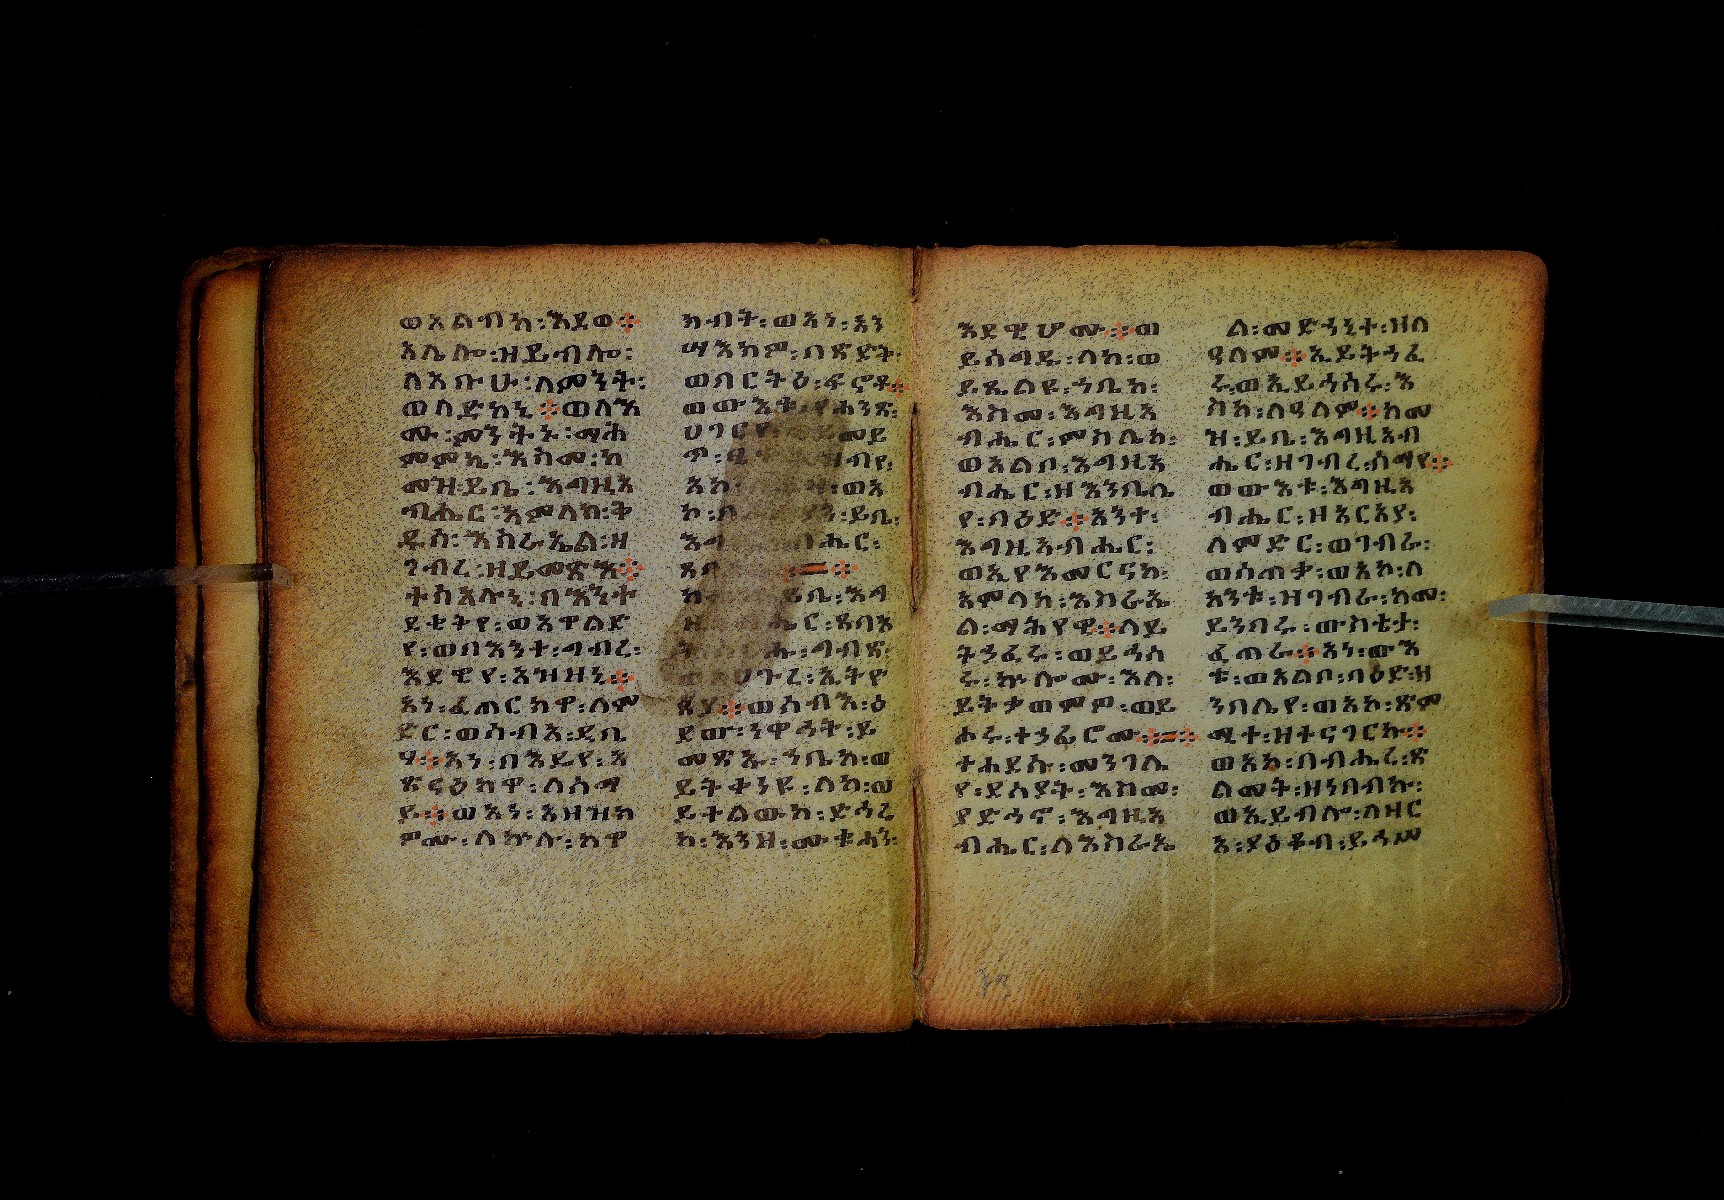 ወአልብከ፡እደወ፨
አሌሎ፡ዝይብሎ፡
ለአቡሁ፡ለምንት፡
ወለድከኒ፨ወለእ
ሙ፡ምንትኑ፡ማሕ
ምምኪ፡እስመ፡ከ
መዝ፡ይቤ፡እግዚአ
ብሔር፡አምላከ፡ቅ
ዱስ፡እስራኤል፡ዘ
ገብረ፡ዘይመጽእ፨
ተስአሉኒ፡በእንተ
ደቂቅየ፡ወአዋልድ
የ፡ወበእንተ፡ግብረ፡
እደዊየ፡አዝዙኒ፨
አነ፡ፈጠርክዋ፡ለም
ድር፡ወሰብአ፡ዲቤ
ሃ፨አነ፡በእዴየ፡አ
ጽናዕክዋ፡ለሰማ
ይ፨ወአነ፡አዘዝክ
ዎሙ፡ለኵሉ፡ከዋ
ክብት፡ወአነ፡አን
ሣእክዎ፡በጽድቅ፡
ወበርትዕ፡ፍኖቶ፨
ወውእቱ፡የሐንጽ፡
ሀገርየ፡
ወአ
ይቤ፡
ብሔር፡
ይቤ፡እግ
ግብጽ፡
ወስብእ፡ዕ
ደው፡ነዋኅት፡ይ
መጽኡ፡ኀቤከ፡ወ
ይትቀነዩ፡ለከ፡ወ
ይተልውከ፡ድኅሬ
ከ፡እንዘ፡ሙቁሓን፡
እደዊሆሙ፨ወ
ይሰግዱ፡ለከ፡ወ
ይጼልዩ፡ኀቤከ፡
እስመ፡እግዚአ
ብሔር፡ምስሌከ፡
ወአልቦ፡እግዚአ
ብሔር፡ዘእንበሌ
የ፡ባዕድ፨አንተ፡
እግዚአብሔር፡
ወኢየአመርናከ፡
አምላከ፡እስራኤ
ል፡ማሕየዊ፨ለይ
ትኃፈሩ፡ወይኅስ
ሩ፡ኵሎሙ፡እለ፡
ይትቃወምዎ፡ወይ
ሖሩ፡ተኃፊሮሙ፨
ተሐደሱ፡መንገሌ
የ፡ደሰያት፡እስመ፡
ያድኅኖ፡እግዚአ
ብሔር፡ለእስራኤ
ል፡መድኅኒተ፡ዘለ
ዓለም፨ኢይትኃፈ
ሩ፡ወኢይኅስሩ፡እ
ስከ፡ለዓለም፨ከመ
ዝ፡ይቤ፡እግዚአብ
ሔር፡ዘገብረ፡ሰማየ፨
ወውእቱ፡እግዚአ
ብሔር፡ዘአርአያ፡
ለምድር፡ወገብራ፡
ወሰጠቃ፡ወአኮ፡ለ
እንቱ፡ዝገብራ፡ከመ፡
ይንበሩ፡ውስቴታ፡
ፈጠራ፨አነ፡ውእ
ቱ፡ወአልቦ፡ባዕድ፡ዘ
ንበሌየ፡ወአኮ፡ጽም
ሚተ፡ዘተናገርኩ፨
ወአኮ፡በብሔረ፡ጽ
ልመት፡ዘነበብኩ፡
ወኢይብሎ፡ለዘር
አ፡ያዕቆብ፡ይኅሥ